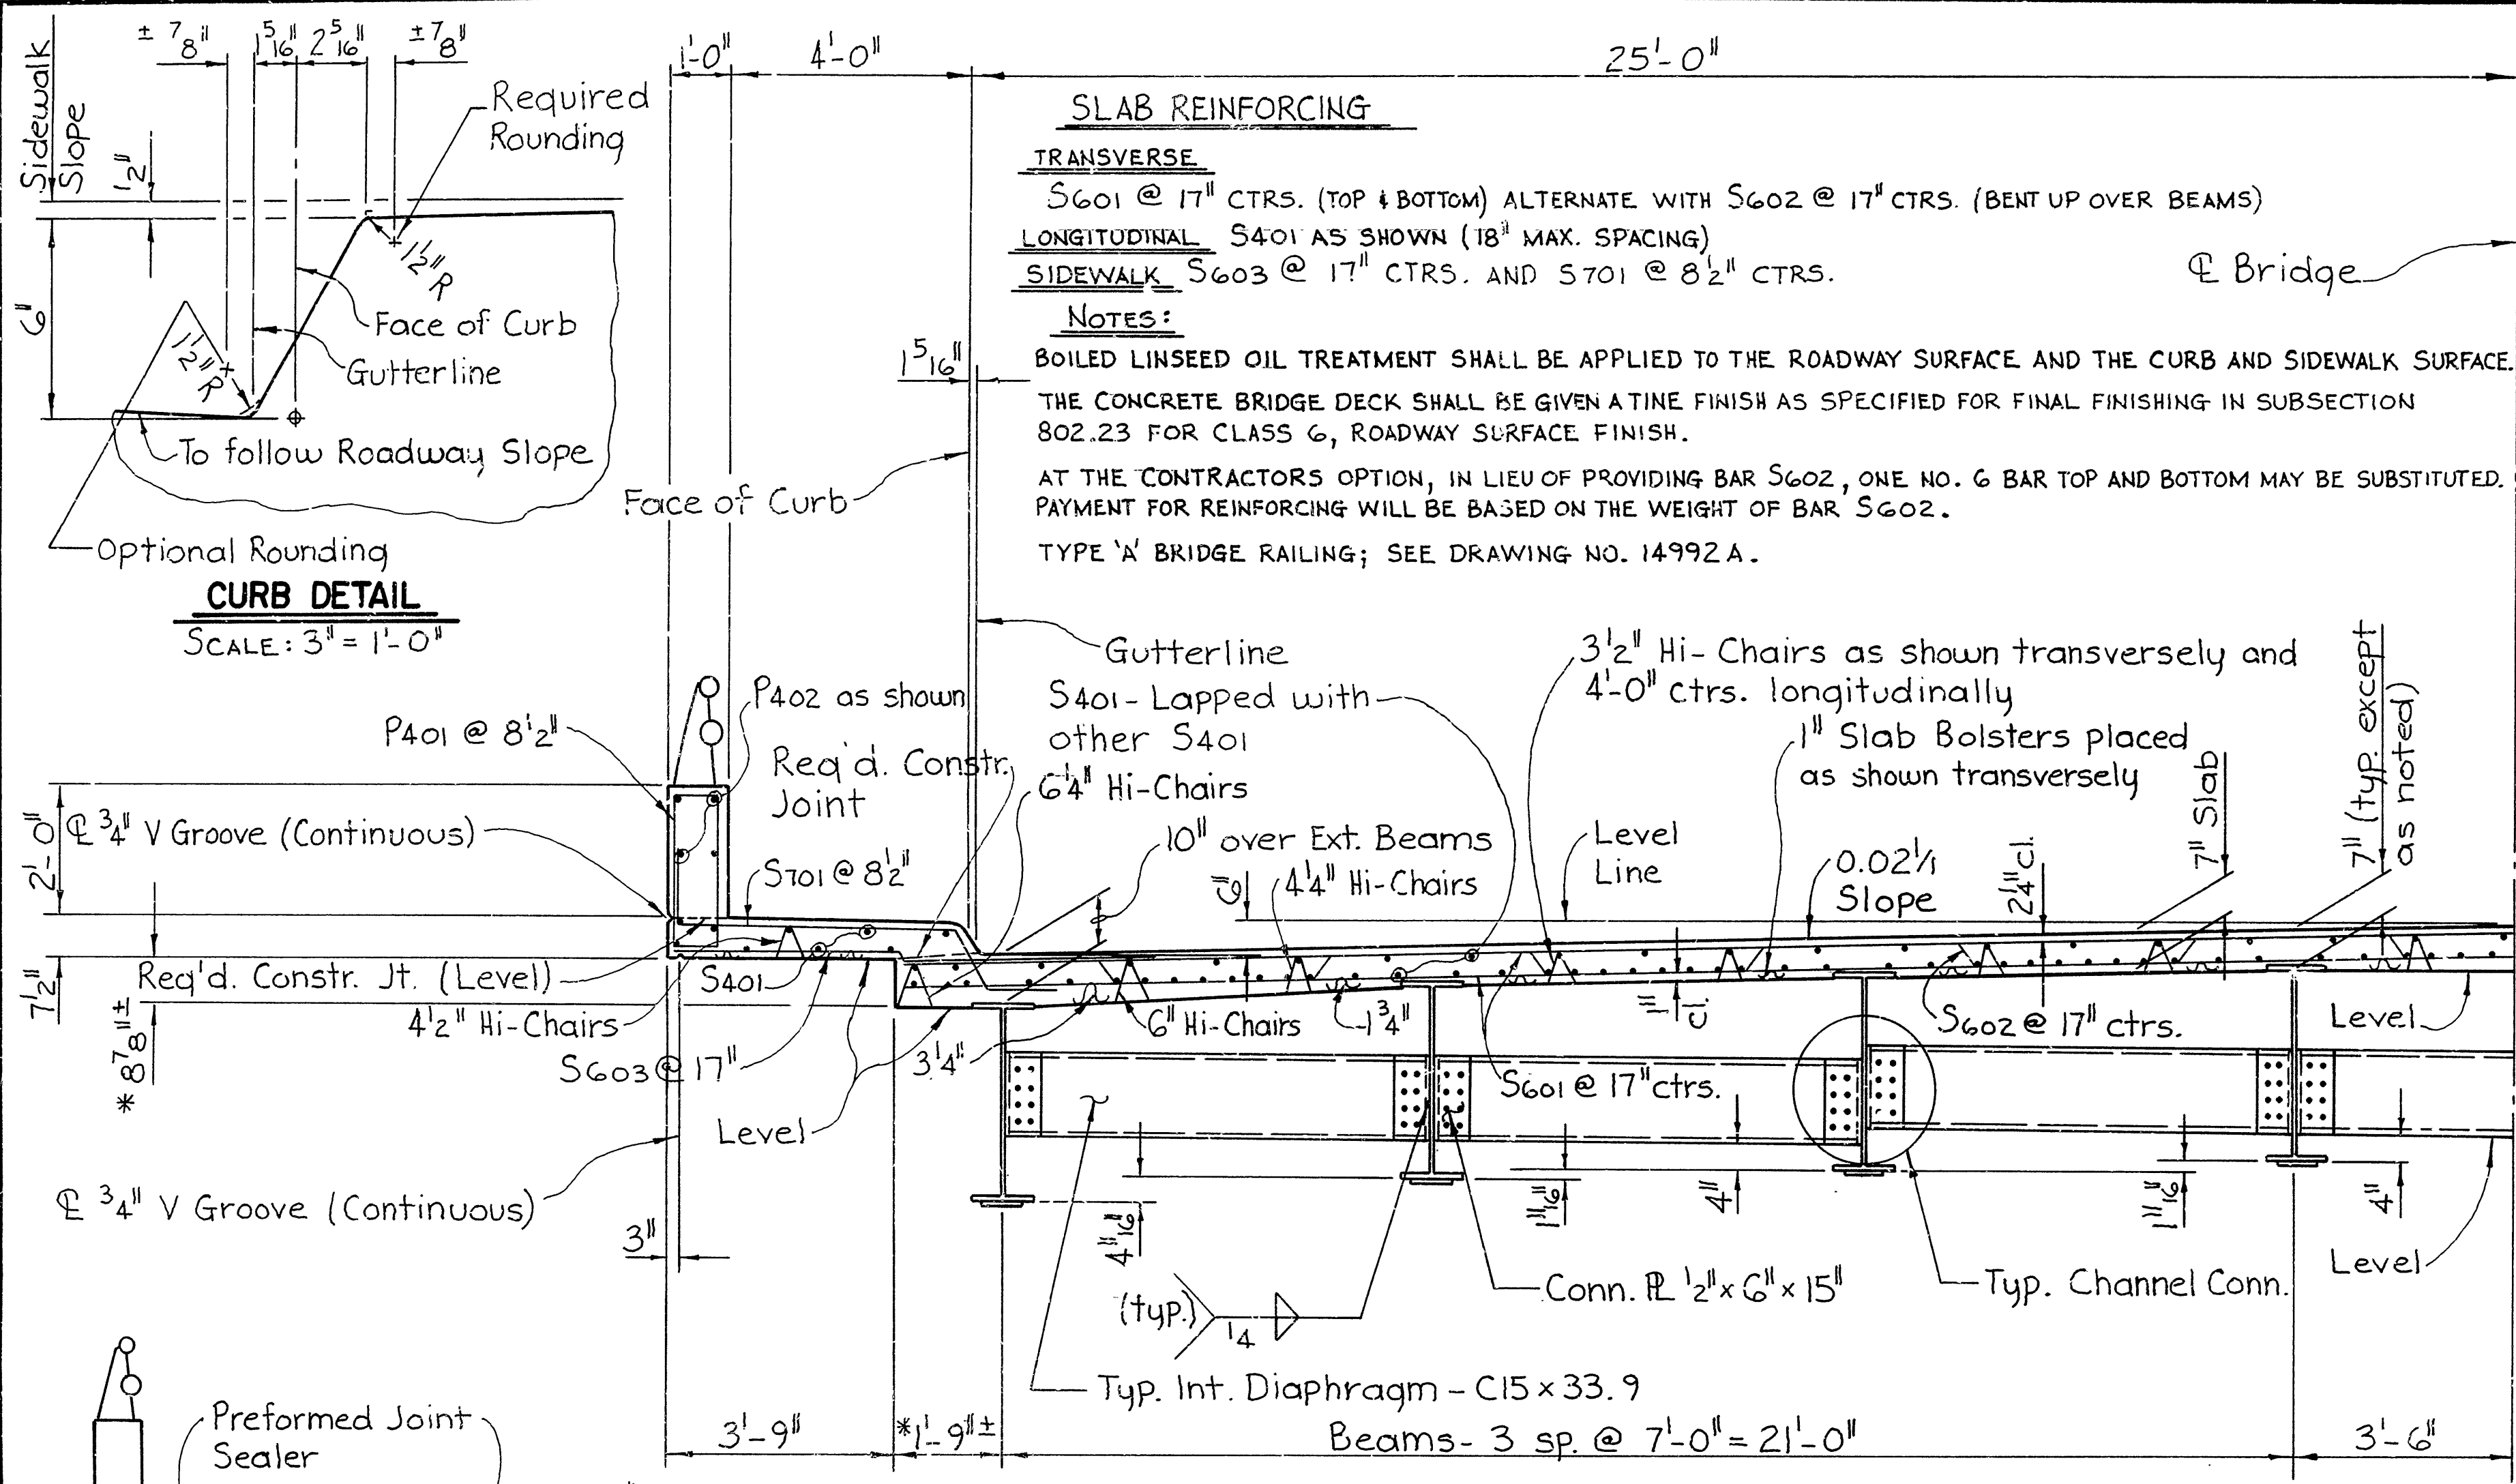 ± 7/8"
1 5/16"
2 5/16"
± 7/8"
Sidewalk
Slope
1/2"
Required
Rounding
1 1/2" R
6"
Face of Curb
Gutterline
1 1/2" R
To follow Roadway Slope
Optional Rounding
CURB DETAIL
SCALE: 3" = 1'-0"
1'-0"
4'-0"
25'-0"
SLAB REINFORCING
TRANSVERSE
S601 @ 17" CTRS. (TOP & BOTTOM) ALTERNATE WITH S602 @ 17" CTRS. (BENT UP OVER BEAMS)
LONGITUDINAL S401 AS SHOWN (18" MAX. SPACING)
SIDEWALK S603 @ 17" CTRS. AND S701 @ 8 1/2" CTRS.
℄ Bridge
NOTES:
BOILED LINSEED OIL TREATMENT SHALL BE APPLIED TO THE ROADWAY SURFACE AND THE CURB AND SIDEWALK SURFACE.
THE CONCRETE BRIDGE DECK SHALL BE GIVEN A TINE FINISH AS SPECIFIED FOR FINAL FINISHING IN SUBSECTION
802.23 FOR CLASS 6, ROADWAY SURFACE FINISH.
AT THE CONTRACTORS OPTION, IN LIEU OF PROVIDING BAR S602, ONE NO. 6 BAR TOP AND BOTTOM MAY BE SUBSTITUTED.
PAYMENT FOR REINFORCING WILL BE BASED ON THE WEIGHT OF BAR S602.
TYPE 'A' BRIDGE RAILING; SEE DRAWING NO. 14992A.
1 5/16"
Face of Curb
Gutterline
P401 @ 8 1/2"
P402 as shown
Req'd. Constr.
Joint
S401 - Lapped with
other S401
6 1/4" Hi-Chairs
3 1/2" Hi-Chairs as shown transversely and
4'-0" ctrs. longitudinally
1" Slab Bolsters placed
as shown transversely
7" Slab
7" (typ. except
as noted)
2'-0"
℄ 3/4" V Groove (Continuous)
S701 @ 8 1/2"
10" over Ext. Beams
4 1/4" Hi-Chairs
6"
Level
Line
0.02 1/1
Slope
2 1/4" cl.
7 1/2"
Req'd. Constr. Jt. (Level)
S401
4 1/2" Hi-Chairs
* 8 7/8" ±
S603 @ 17"
3 1/4"
6" Hi-Chairs
1 3/4"
1" cl.
S602 @ 17" ctrs.
Level
S601 @ 17" ctrs.
Level
℄ 3/4" V Groove (Continuous)
3"
1 11/16"
4"
1 11/16"
4"
Level
(typ.)
1/4
Conn. ℄ 1/2" x 6" x 15"
Typ. Channel Conn.
Typ. Int. Diaphragm - C15 x 33.9
3'-9"
*1'-9" ±
Beams - 3 sp. @ 7'-0" = 21'-0"
3'-6"
Preformed Joint
Sealer